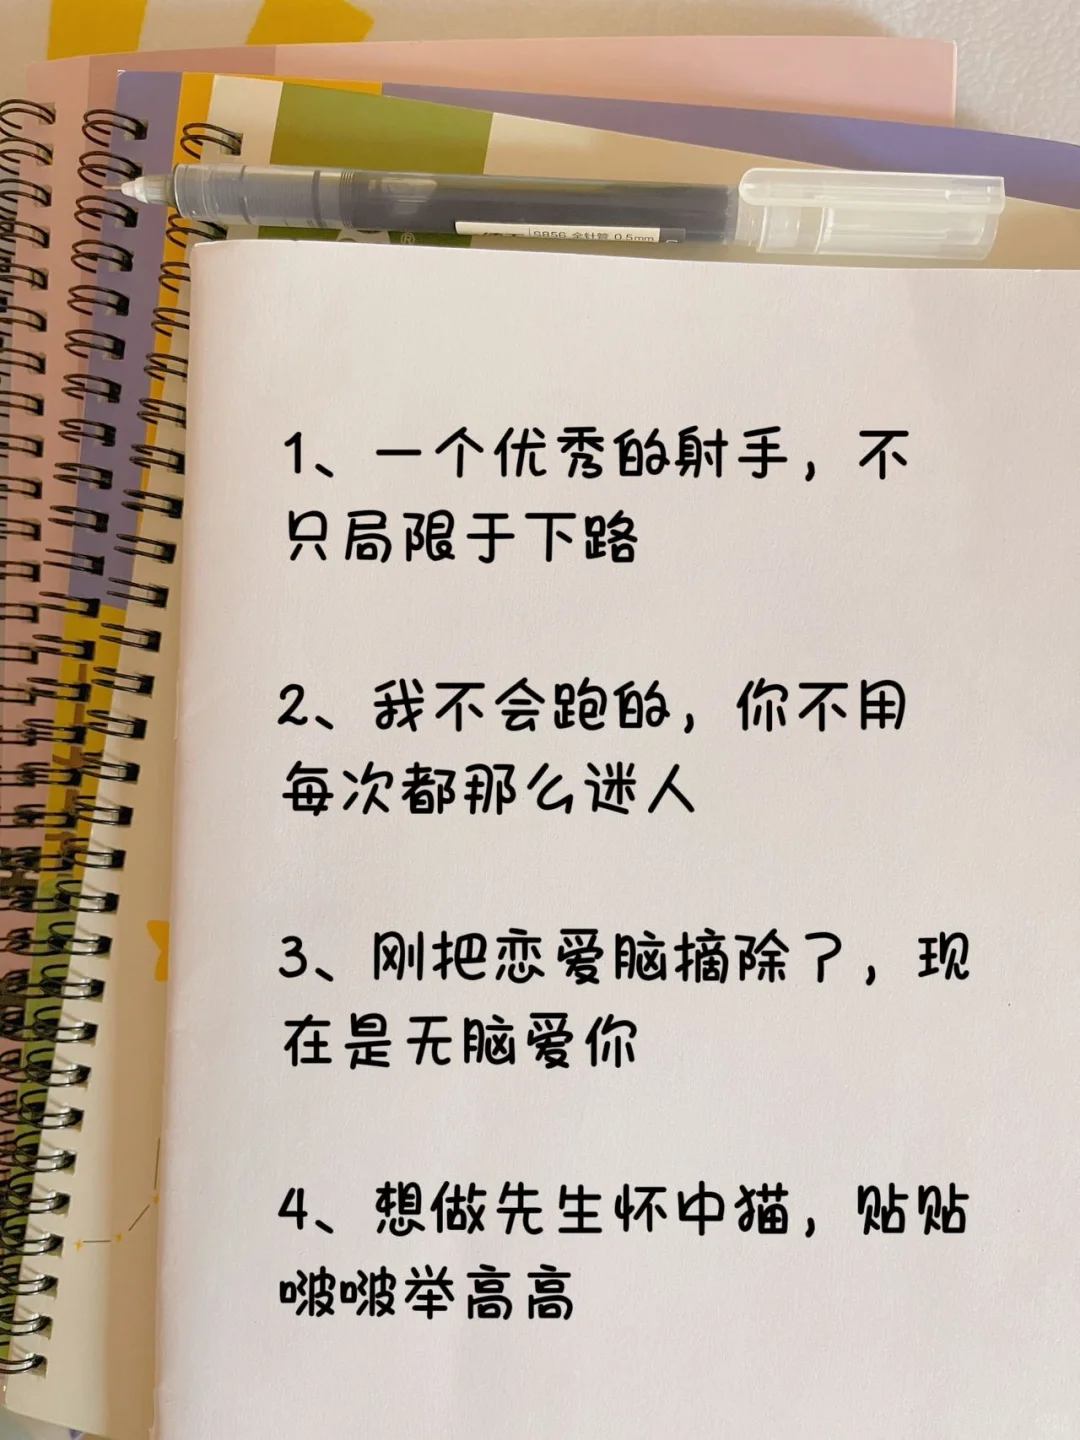 S856 全针管 0.5mm
®
1、一个优秀的射手，不
只局限于下路
2、我不会跑的，你不用
每次都那么迷人
3、刚把恋爱脑摘除了，现
在是无脑爱你
4、想做先生怀中猫，贴贴
啵啵举高高